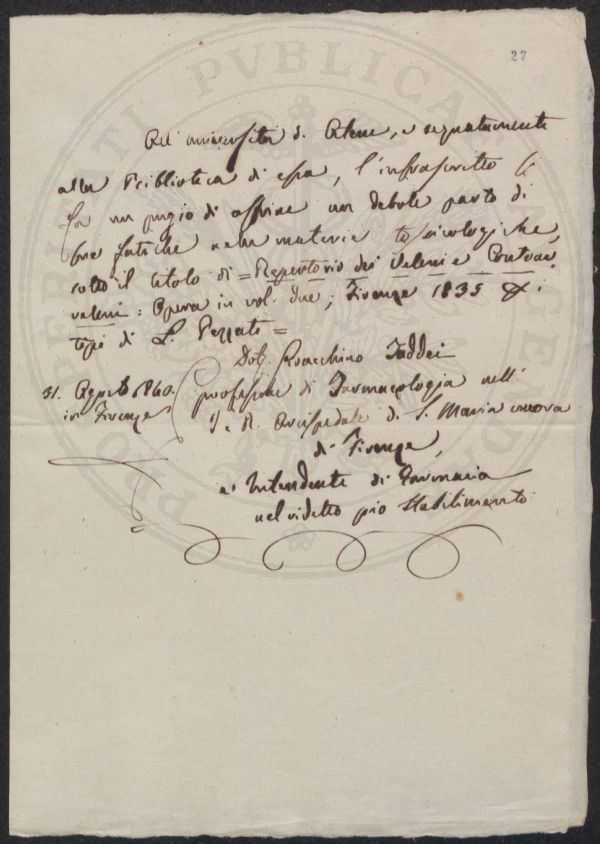 27
All' università di Atene, e segnatamente
alla Biblioteca di essa, l'infrascritto
fa un pregio di offrire un debole parto di
sue fatiche nelle materie tossicologiche,
sotto il titolo di = Repertorio dei Veleni e Contrav-
veleni: Opera in vol. due; Firenze 1835 &: i
tipi di L. Pezzati =
Dot. Gioacchino Taddei
31. Agosto 1840. professore di Farmacologia nell'
in Firenze I. e R. Arcispedale di S. Maria nuova
di Firenze,
e Intendente di Farmacia
nel videtto pio stabilimento
PROPRIETATI PUBLICAE